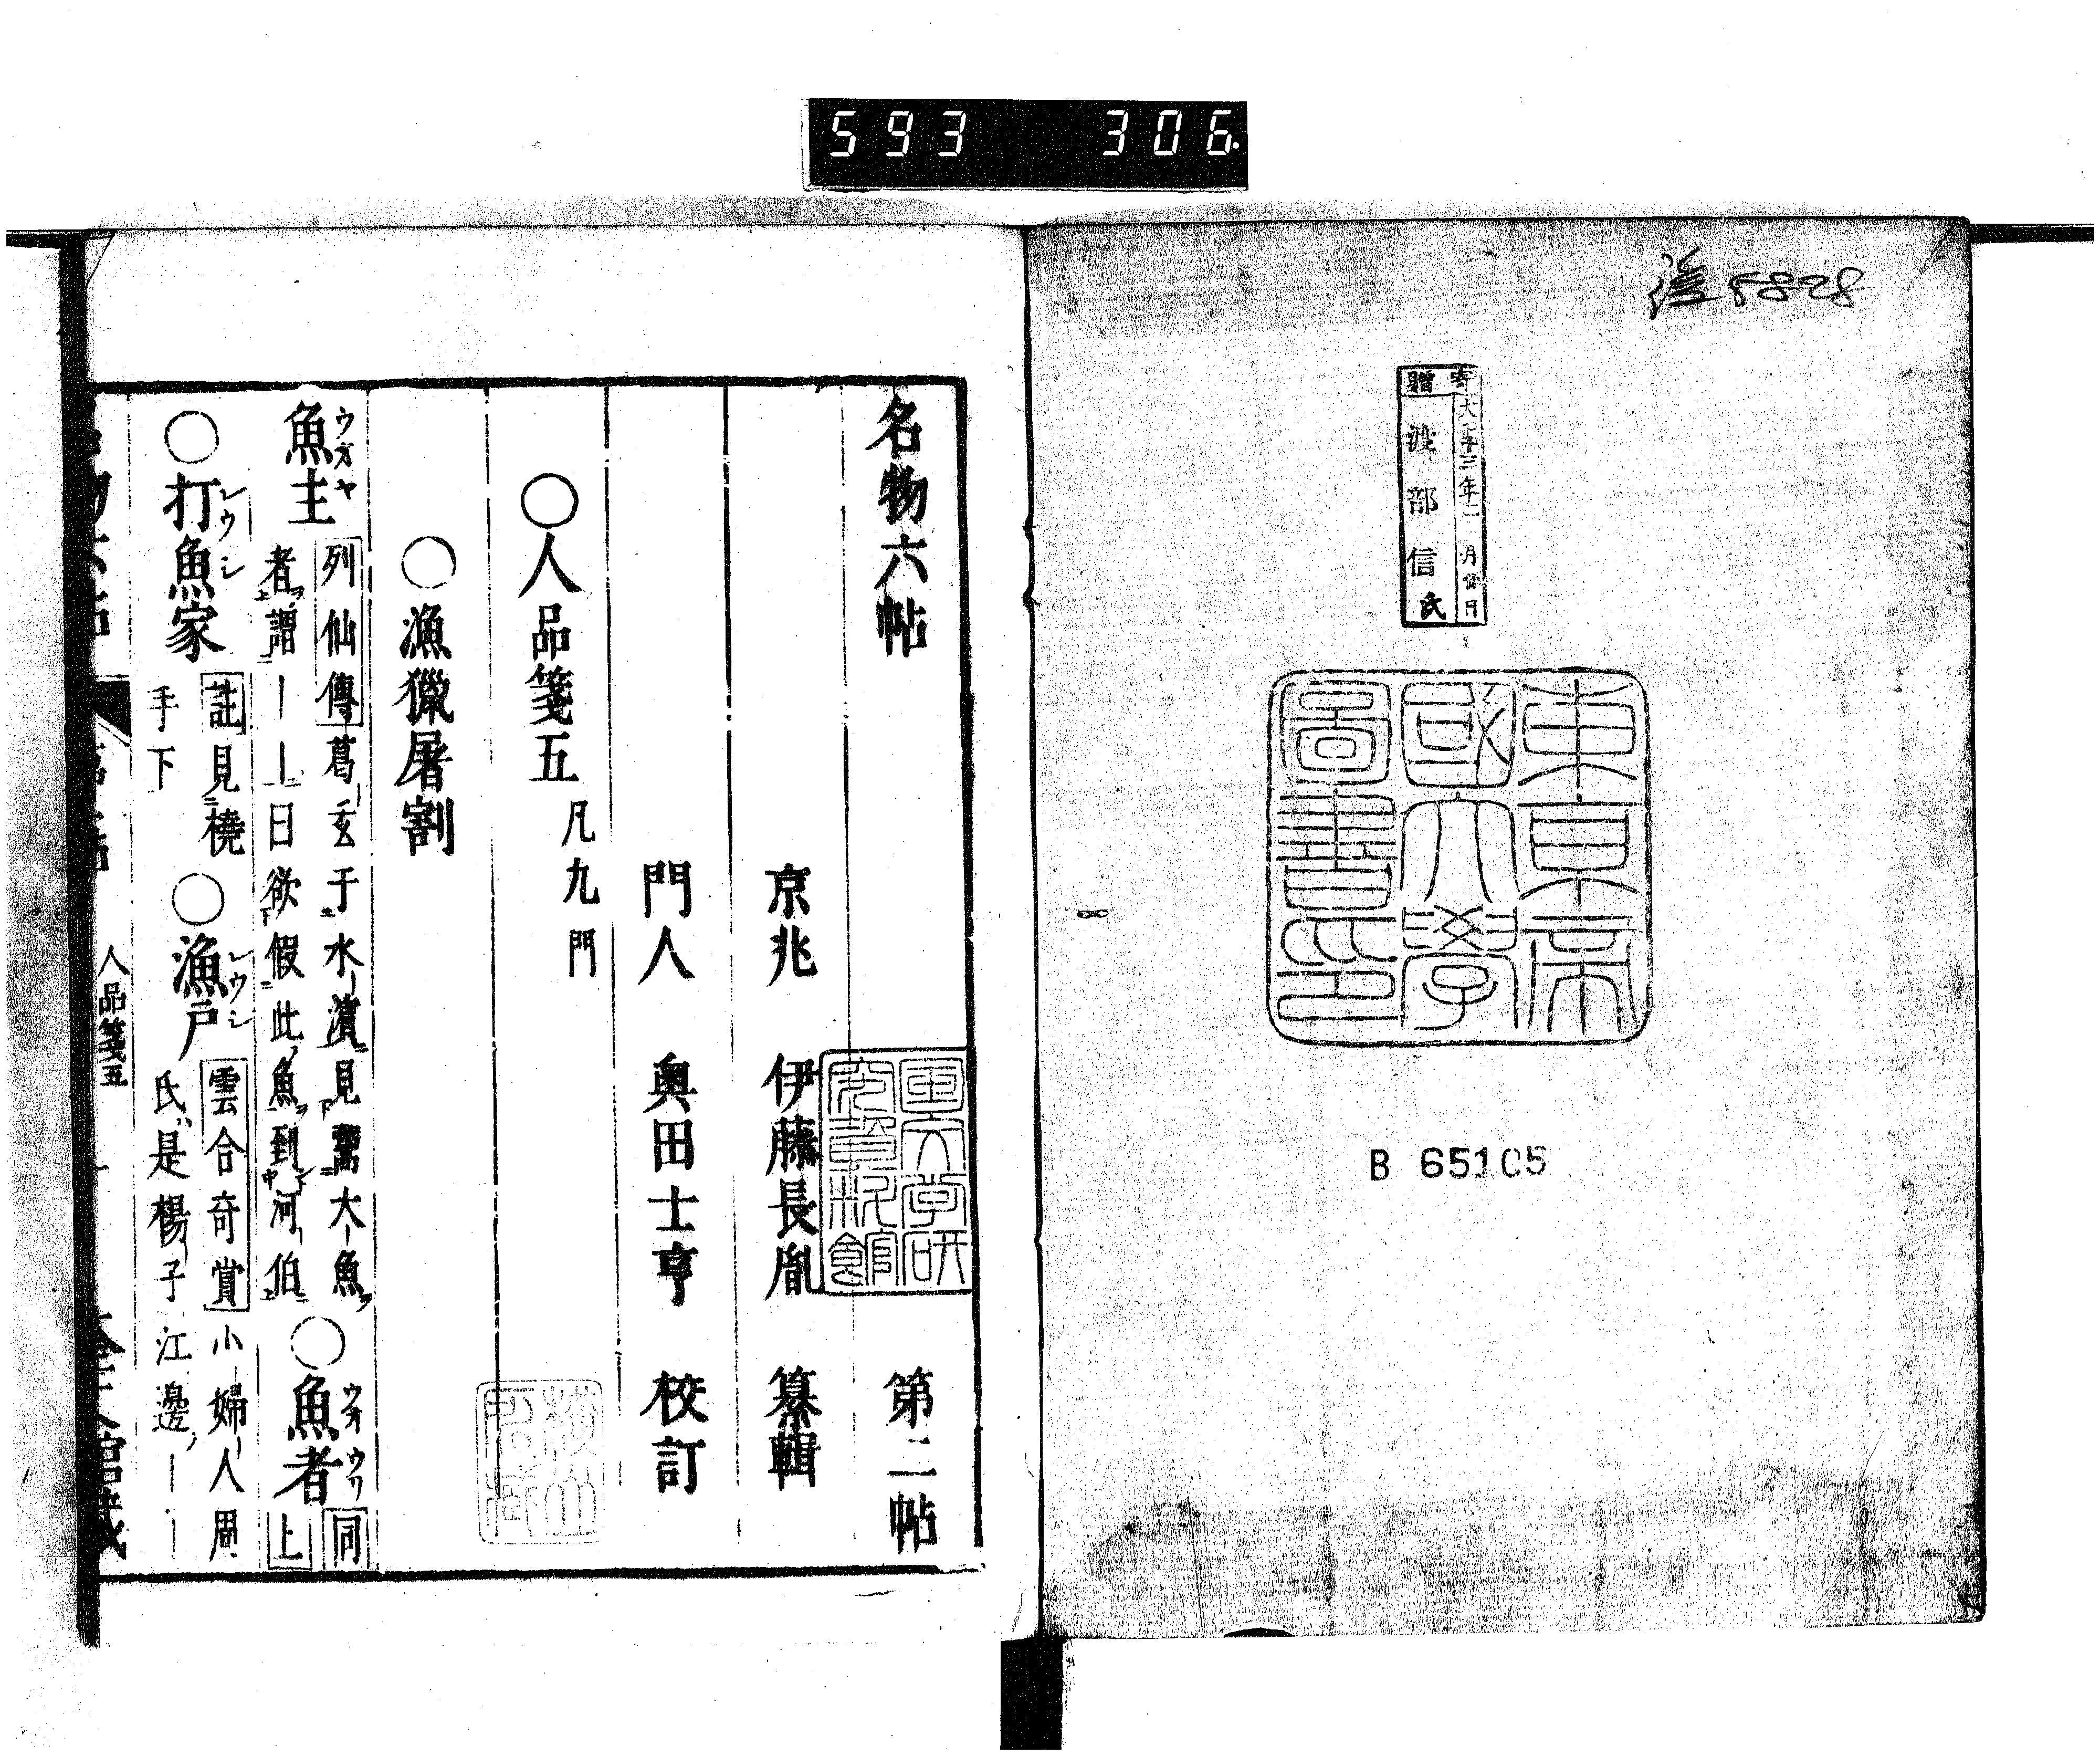 593 306.
5828
寄贈
大正十三年二月廿日
渡部信氏
東京帝
國大學
圖書印
B 65105
名物六帖 第二帖
京兆 伊藤長胤 纂輯
門人 奥田士亨 校訂
〇人品箋五 凡九門
〇漁獵屠割
魚主 ウヲヤ 列仙傳葛玄于水濱見鬻大魚
者謂――曰欲假此魚到河伯 〇魚者 ウオウリ 同上
〇打魚家 レウシ 註見橈
手下 〇漁戸 レウシ 雲合奇賞小婦人周
氏是楊子江邊――
人品箋五 一